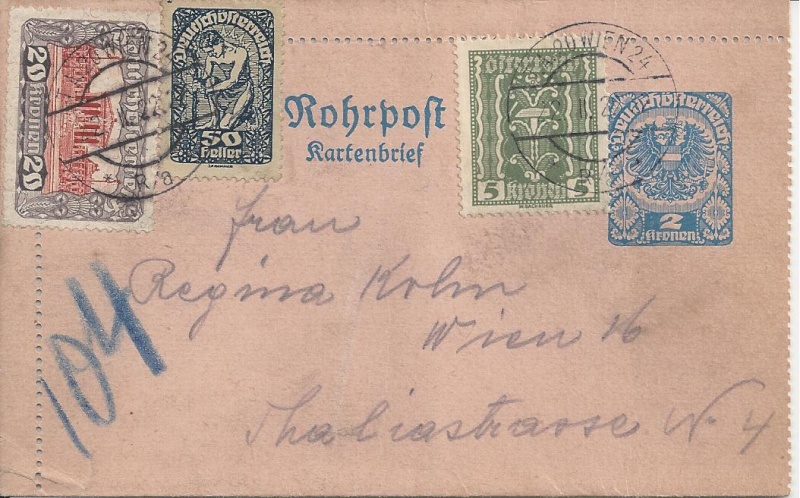 20
Kronen
20
Deutschösterreich
50
Heller
Rohrpost
Kartenbrief
Österreich
5 Kronen 5
WIEN 24
Deutschösterreich
2
Kronen
Frau
Regina Kohn
Wien 16
Thaliastrasse Nr 4
104